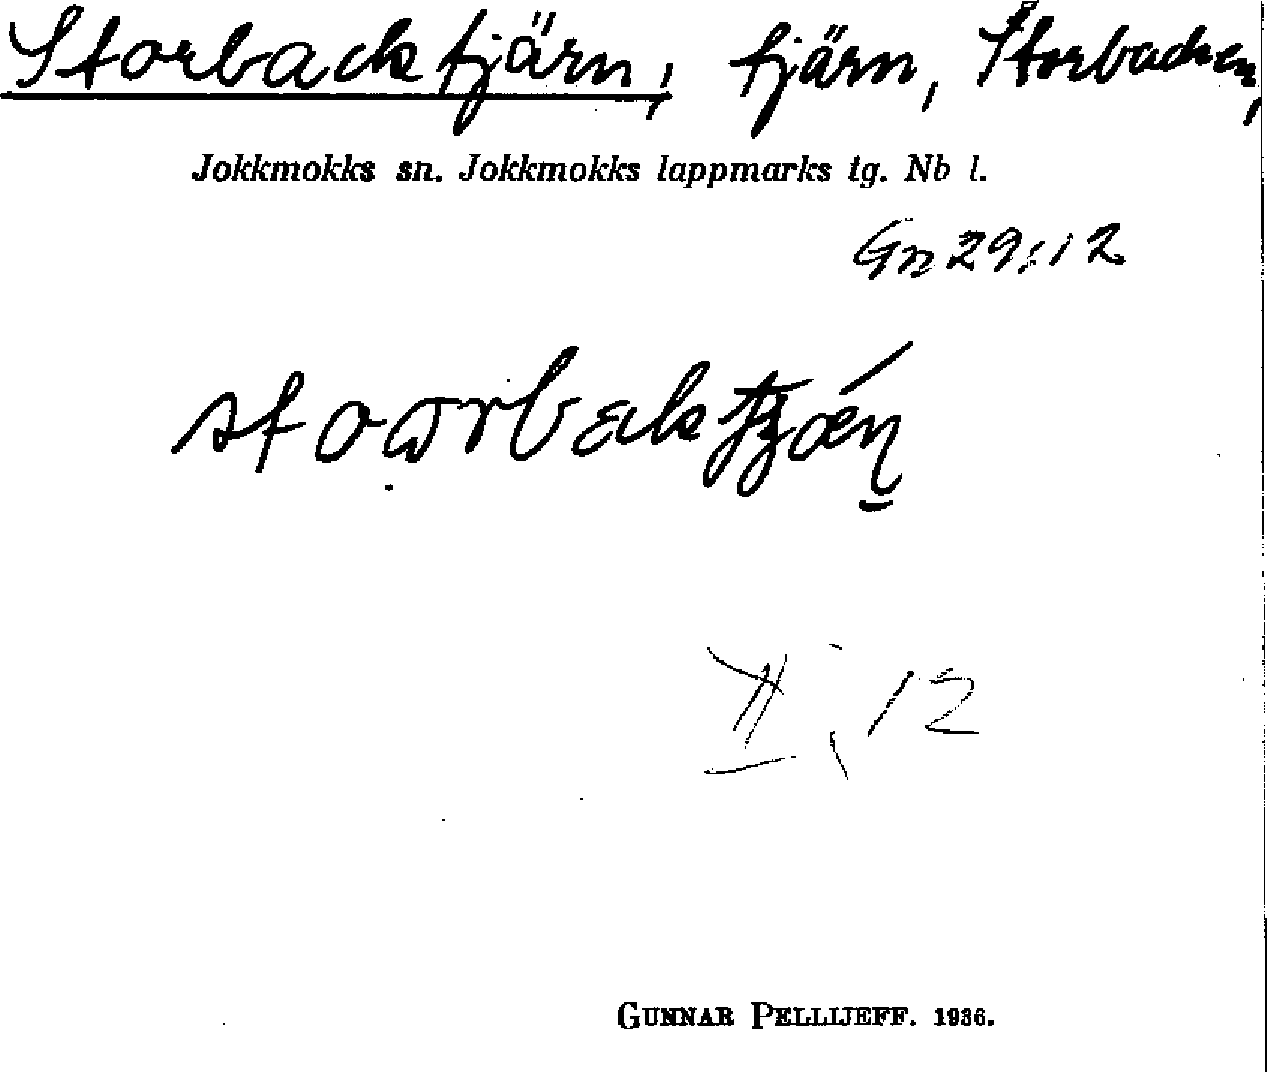 Storbacktjärn, tjärn, Storbacken,
Jokkmokks sn. Jokkmokks lappmarks tg. Nb l.
Gn 29:12
II; 12
GUNNAR PELLIJEFF. 1936.